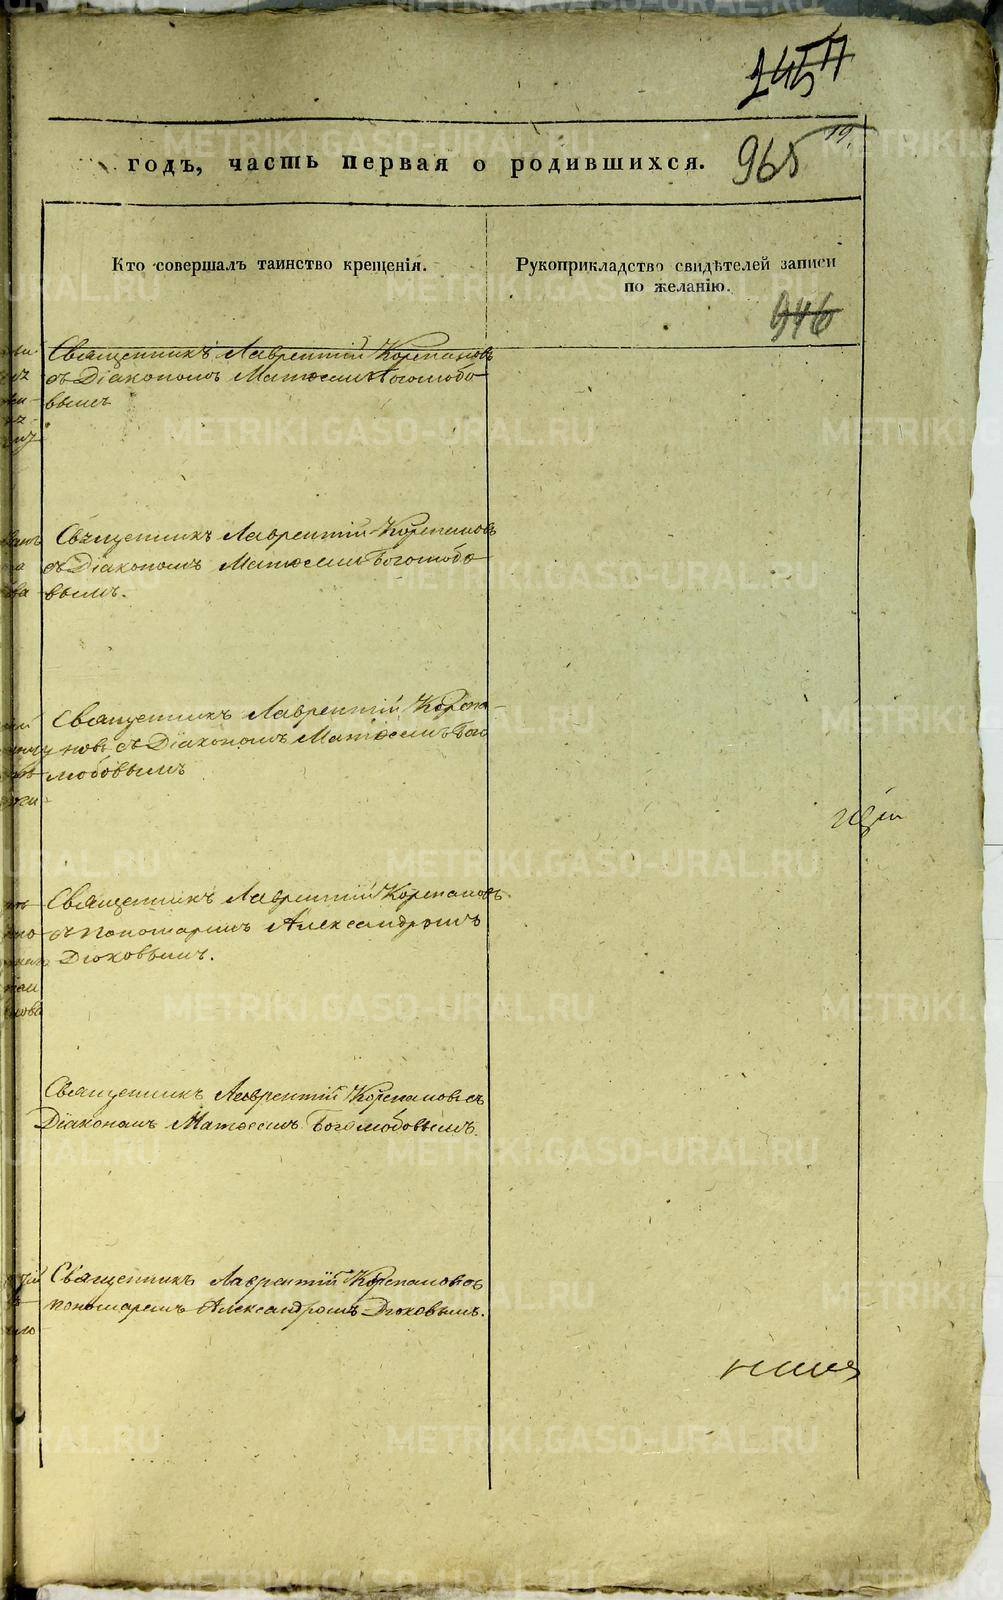 19.
годъ, часть первая о родившихся. 965
Кто совершалъ таинство крещенія.
Рукоприкладство свидѣтелей записи
по желанію.
946
Священникъ Лаврентій Корепановъ
съ Діакономъ Матѳеемъ Боголюбо-
вымъ
Священникъ Лаврентій Корепановъ
съ Діакономъ Матѳеемъ Боголюбо-
вымъ.
Священникъ Лаврентій Корепа-
новъ съ Діакономъ Матѳеемъ Бого
любовымъ
Священникъ Лаврентій Корепановъ
съ пономаремъ Александромъ
Дюковымъ.
Священникъ Лаврентій Корепановъ съ
Діакономъ Матѳеемъ Боголюбовымъ.
Священникъ Лаврентій Корепановъ съ
пономаремъ Александромъ Дюковымъ.
METRIKI.GASO-URAL.RU